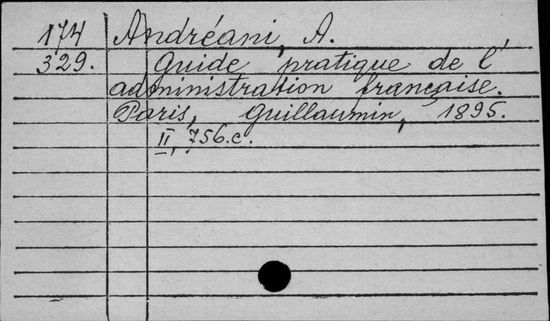 174 Andréani, A.
329. Guide pratique de l'
administration française.
Paris, Guillaumin, 1895.
II, 756.c.